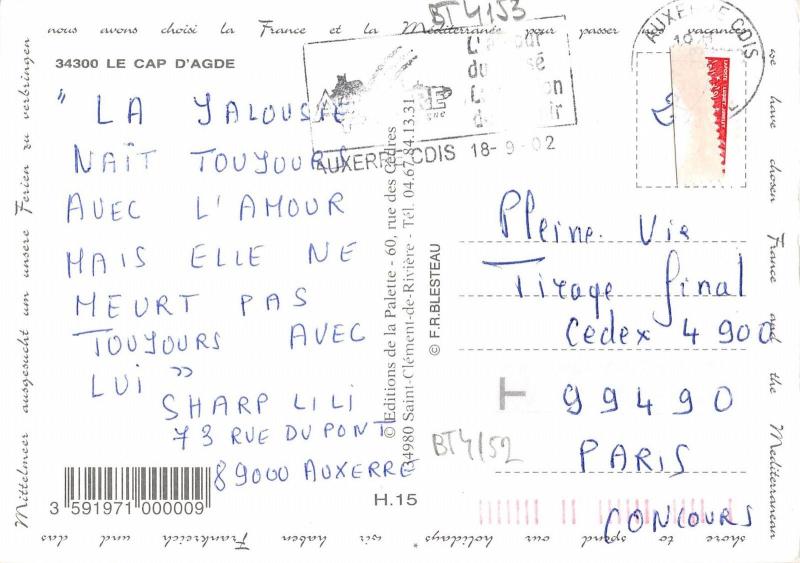 nous avons choisi la France et la Méditerranée pour passer nos vacances
we have chosen France and the Mediterranean
shore to spend our holidays *
wir haben Frankreich und das
Mittelmeer ausgesucht um unsere Ferien zu verbringen
34300 LE CAP D'AGDE
BT4153
AUXERRE CDIS 18-9-02
AUXERRE CDIS
" LA JALOUSIE
NAÎT TOUJOURS
AVEC L'AMOUR
MAIS ELLE NE
MEURT PAS
TOUJOURS AVEC
LUI "
SHARP LILI
73 RUE DU PONT
89000 AUXERRE
3 591971 000009
H.15
© Editions de la Palette - 60, rue des Cèdres
34980 Saint-Clément-de-Rivière - Tél. 04.67.84.13.31
© F.R.BLESTEAU
Pleine Vie
Tirage final
Cedex 4 900
T 99490
BT4152
PARIS
CONCOURS